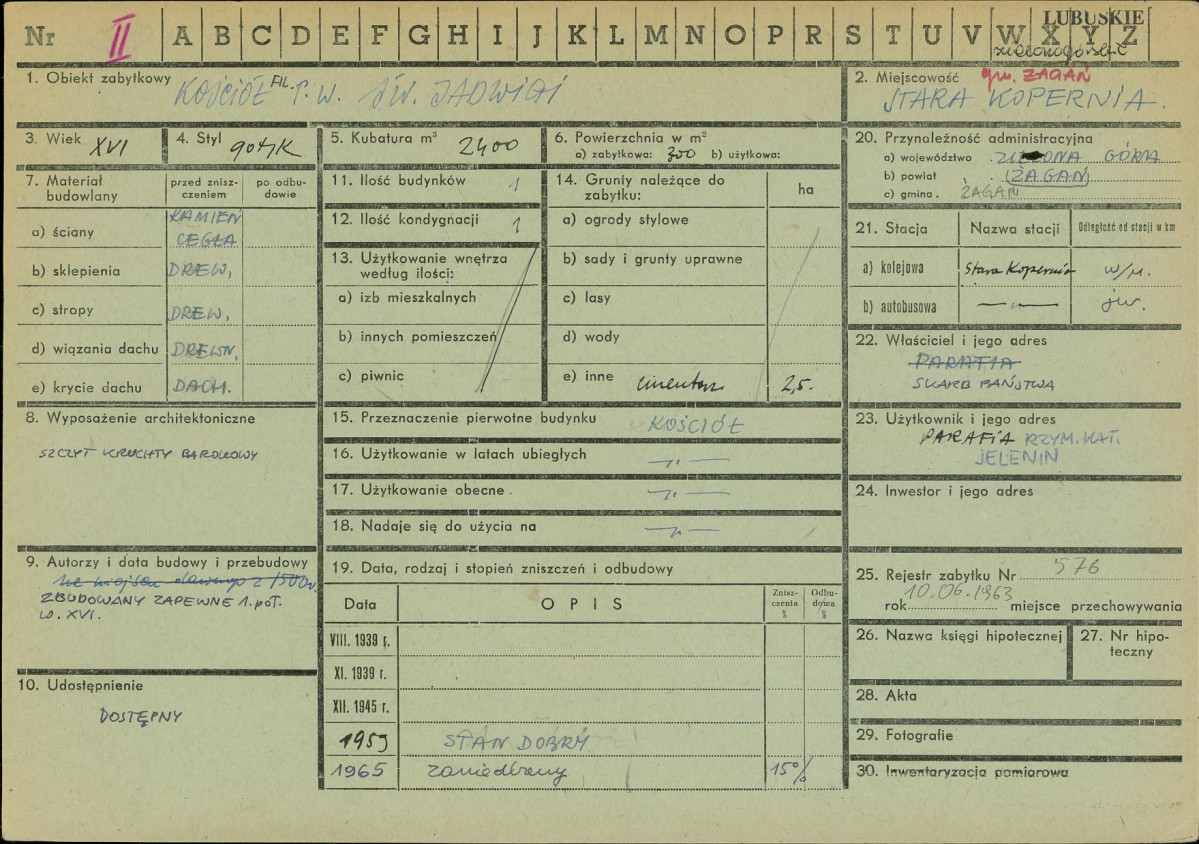 LUBUSKIE
Nr II A B C D E F G H I J K L M N O P R S T U V W X Y Z
zielonogórskie
1. Obiekt zabytkowy KOŚCIÓŁ FIL. P.W. ŚW. JADWIGI
2. Miejscowość gm. ŻAGAŃ
STARA KOPERNIA.
3. Wiek XVI
4. Styl gotyk
5. Kubatura m³ 2400
6. Powierzchnia w m²
a) zabytkowa: 300 b) użytkowa:
7. Materiał budowlany
przed zniszczeniem
po odbudowie
a) ściany KAMIEŃ CEGŁA
b) sklepienia DREW.
c) stropy DREW.
d) wiązania dachu DREWN.
e) krycie dachu DACH.
8. Wyposażenie architektoniczne
SZCZYT KRUCHTY BAROKOWY
9. Autorzy i data budowy i przebudowy
na miejscu dawnego z 1500 r.
ZBUDOWANY ZAPEWNE 1. POŁ.
W. XVI.
10. Udostępnienie
DOSTĘPNY
11. Ilość budynków 1
12. Ilość kondygnacji 1
13. Użytkowanie wnętrza
według ilości:
a) izb mieszkalnych
b) innych pomieszczeń
c) piwnic
14. Grunty należące do
zabytku:
ha
a) ogrody stylowe
b) sady i grunty uprawne
c) lasy
d) wody
e) inne cmentarz 2,5.
15. Przeznaczenie pierwotne budynku KOŚCIÓŁ
16. Użytkowanie w latach ubiegłych —„—
17. Użytkowanie obecne —„—
18. Nadaje się do użycia na —„—
19. Data, rodzaj i stopień zniszczeń i odbudowy
Data
OPIS
Zniszczenia %
Odbudowa %
VIII. 1939 r.
XI. 1939 r.
XII. 1945 r.
1959 STAN DOBRY
1965 zaniedbany 15%
20. Przynależność administracyjna
a) województwo ZIELONA GÓRA
b) powiat ŻAGAŃ
c) gmina ŻAGAŃ
21. Stacja
Nazwa stacji
Odległość od stacji w km
a) kolejowa Stara Kopernia w/m.
b) autobusowa —„— jw.
22. Właściciel i jego adres
PARAFIA
SKARB PAŃSTWA
23. Użytkownik i jego adres
PARAFIA RZYM. KAT.
JELENIN
24. Inwestor i jego adres
25. Rejestr zabytku Nr 576
rok 10.06.1963 miejsce przechowywania
26. Nazwa księgi hipotecznej
27. Nr hipoteczny
28. Akta
29. Fotografie
30. Inwentaryzacja pomiarowa